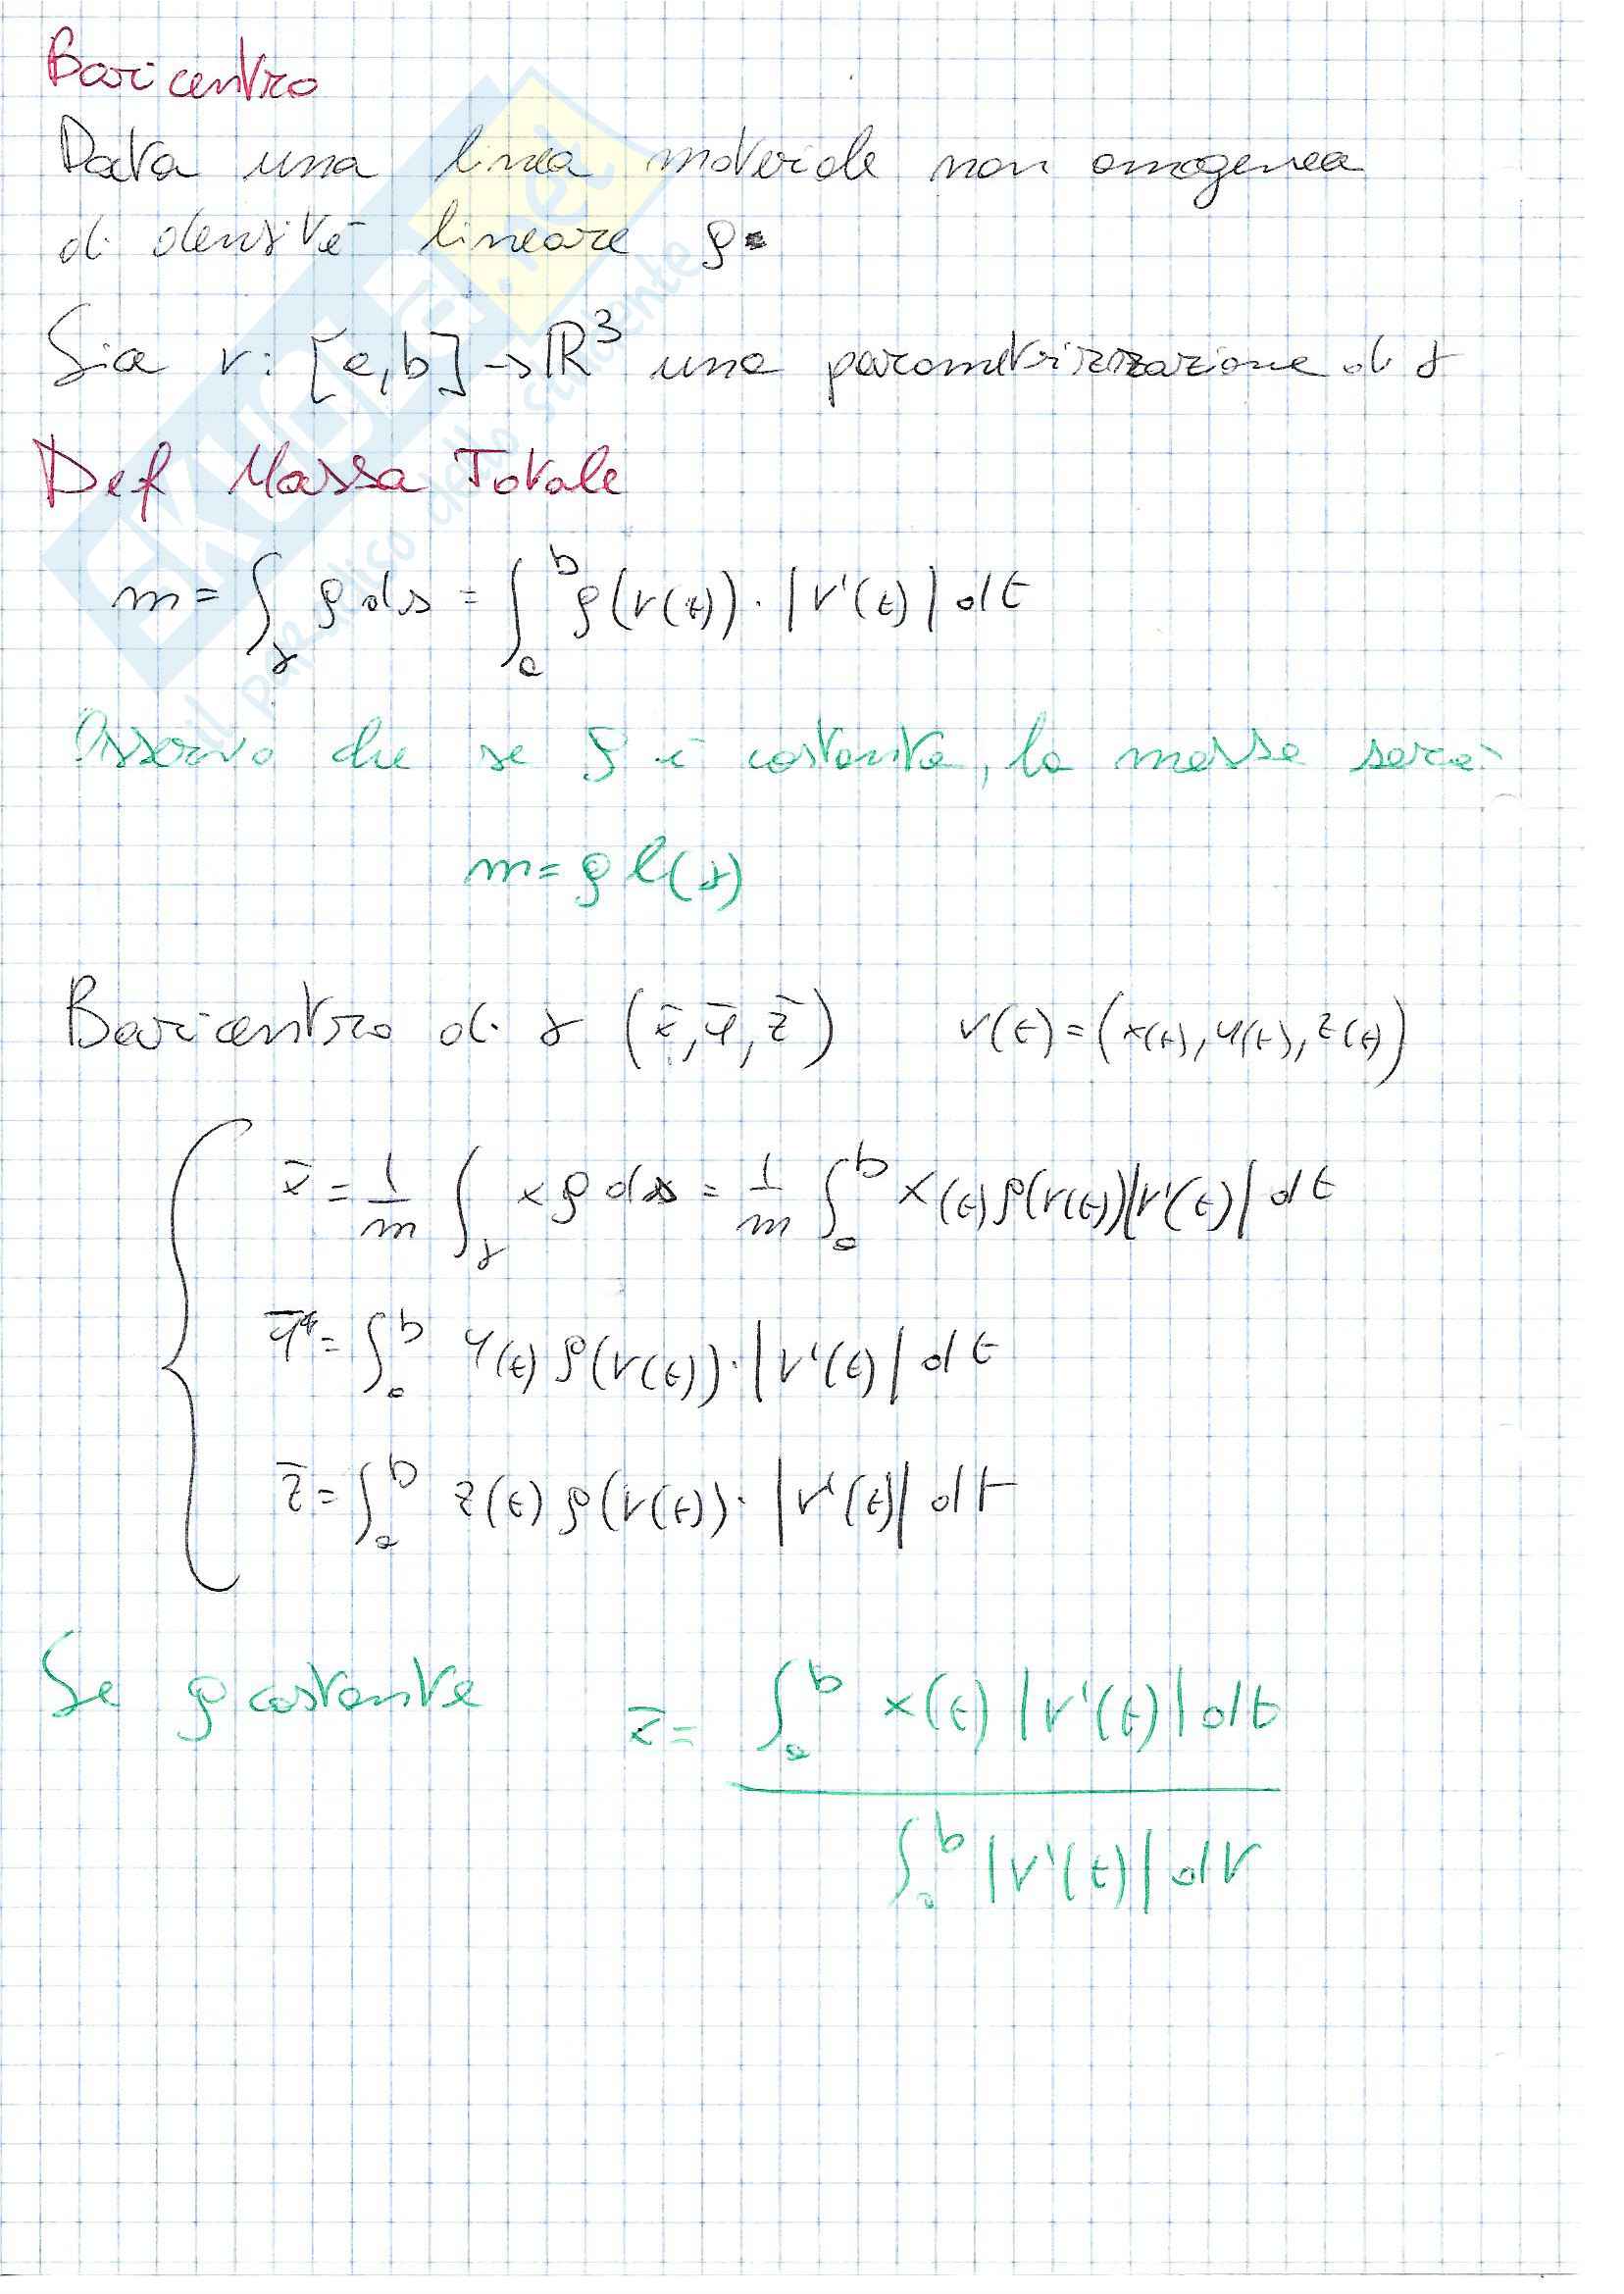 Baricentro
Data una linea materiale non omogenea
di densità lineare ρ
Sia r: [a,b] → ℝ³ una parametrizzazione di γ
Def Massa Totale
m = ∫_γ ρ ds = ∫_a^b ρ(r(t)) · |r'(t)| dt
Osservo che se ρ è costante, la massa sarà:
m = ρ l(γ)
Baricentro di γ (x̄, ȳ, z̄) r(t) = (x(t), y(t), z(t))
x̄ = 1/m ∫_γ x ρ ds = 1/m ∫_a^b x(t) ρ(r(t)) |r'(t)| dt
ȳ = ∫_a^b y(t) ρ(r(t)) · |r'(t)| dt
z̄ = ∫_a^b z(t) ρ(r(t)) · |r'(t)| dt
Se ρ costante x̄ = ∫_a^b x(t) |r'(t)| dt
∫_a^b |r'(t)| dt
SKUOLA.net
il paradiso dello studente